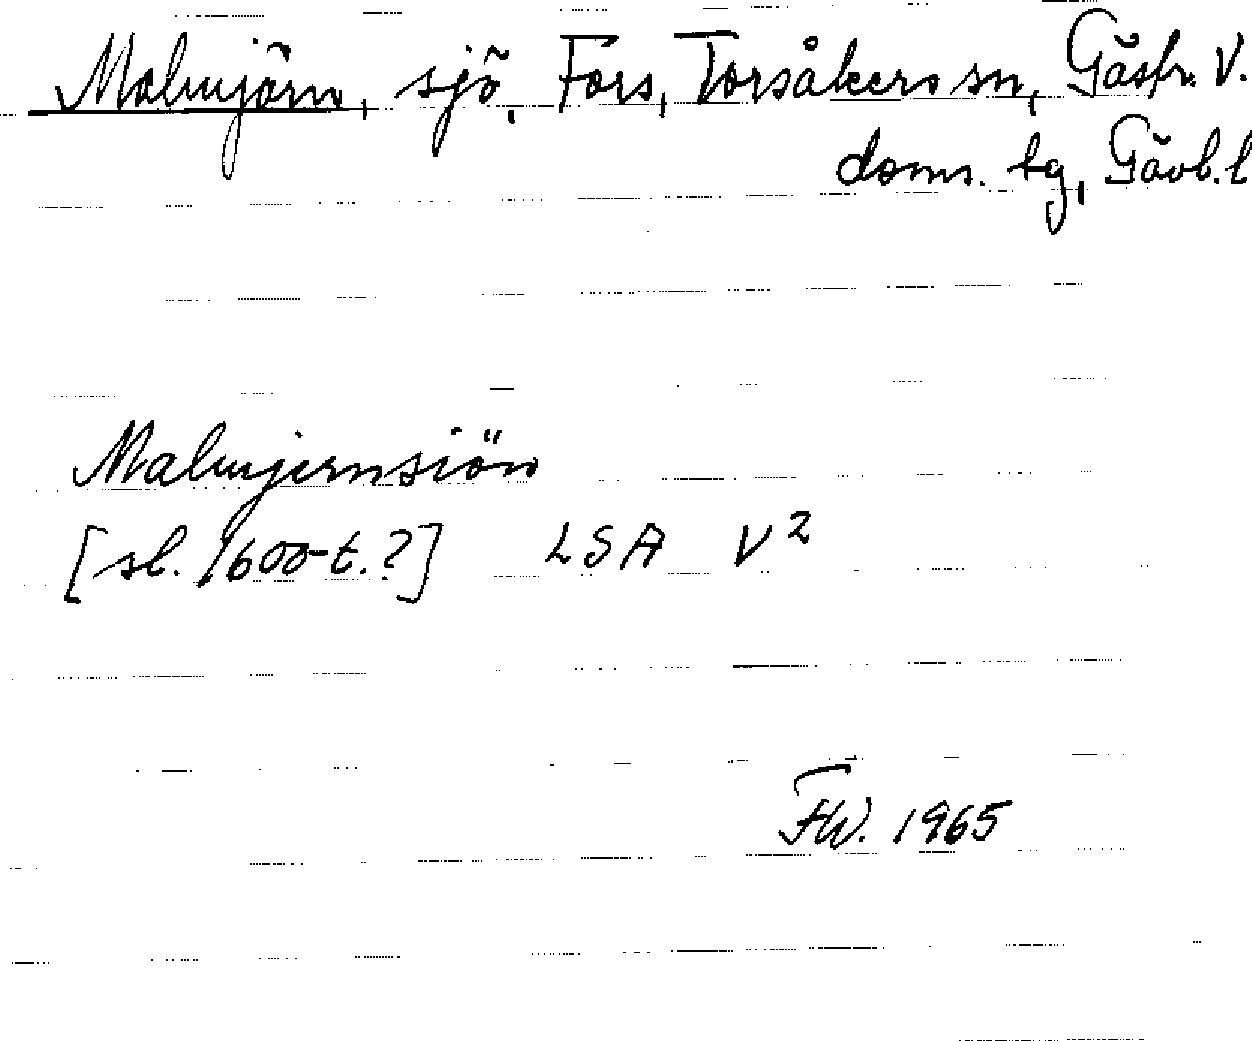 Malmjärn, sjö, Fors, Torsåkers sn, Gästr. V.
doms. tg, Gävb. l
Malmjernsiön
[sl. 1600-t.?] LSA V²
FW. 1965